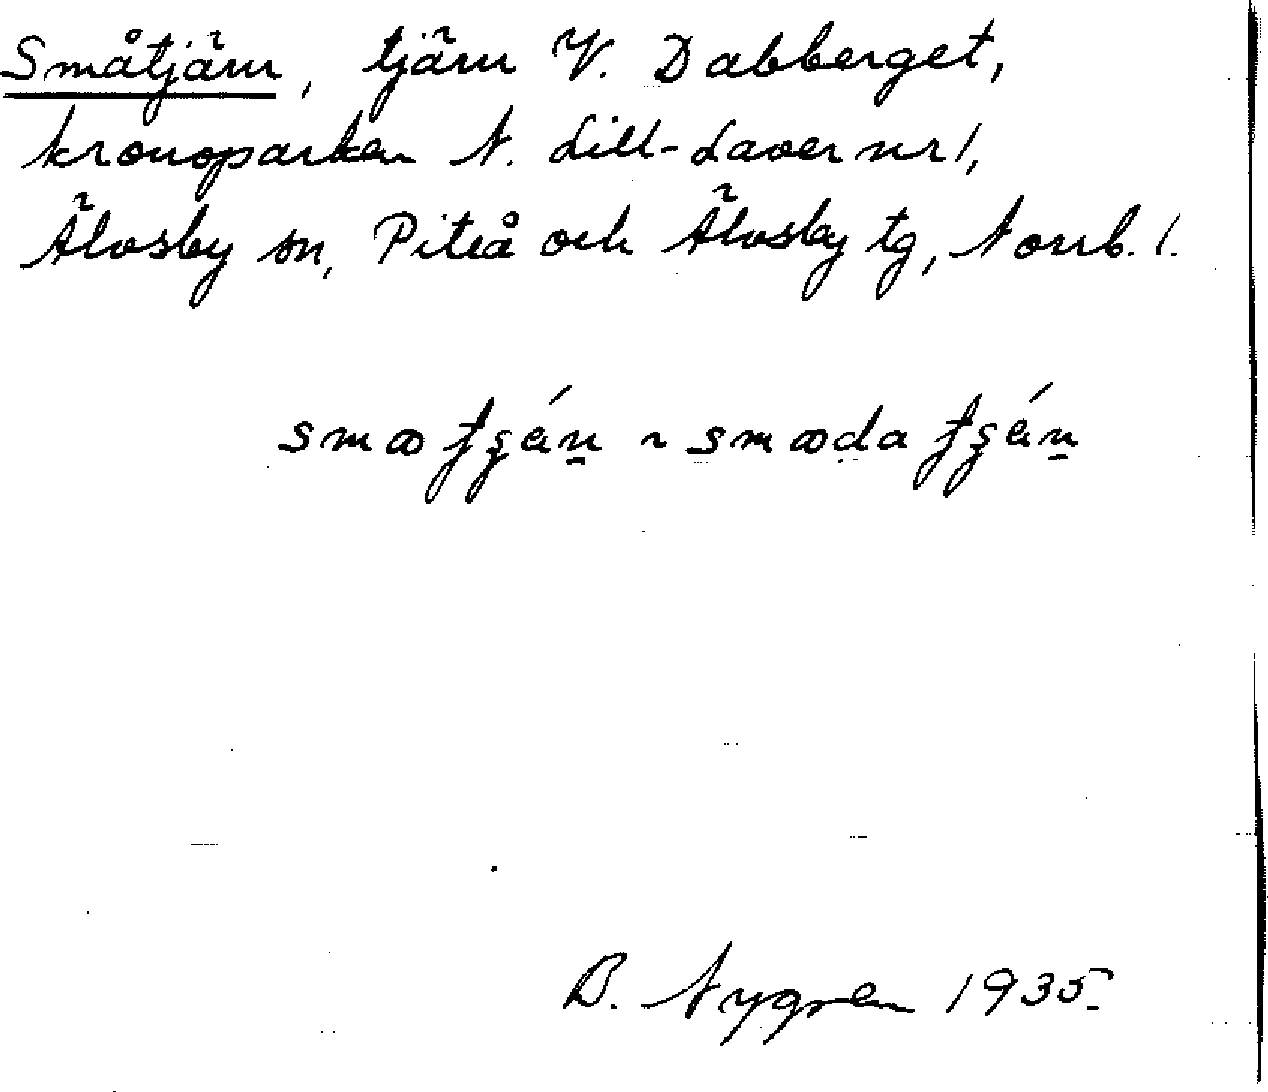 Småtjärn, tjärn V. Dabberget,
kronoparken N. Lill-Laver nr 1,
Älvsby sn, Piteå och Älvsby tg, Norrb. l.
B. Nygren 1935.